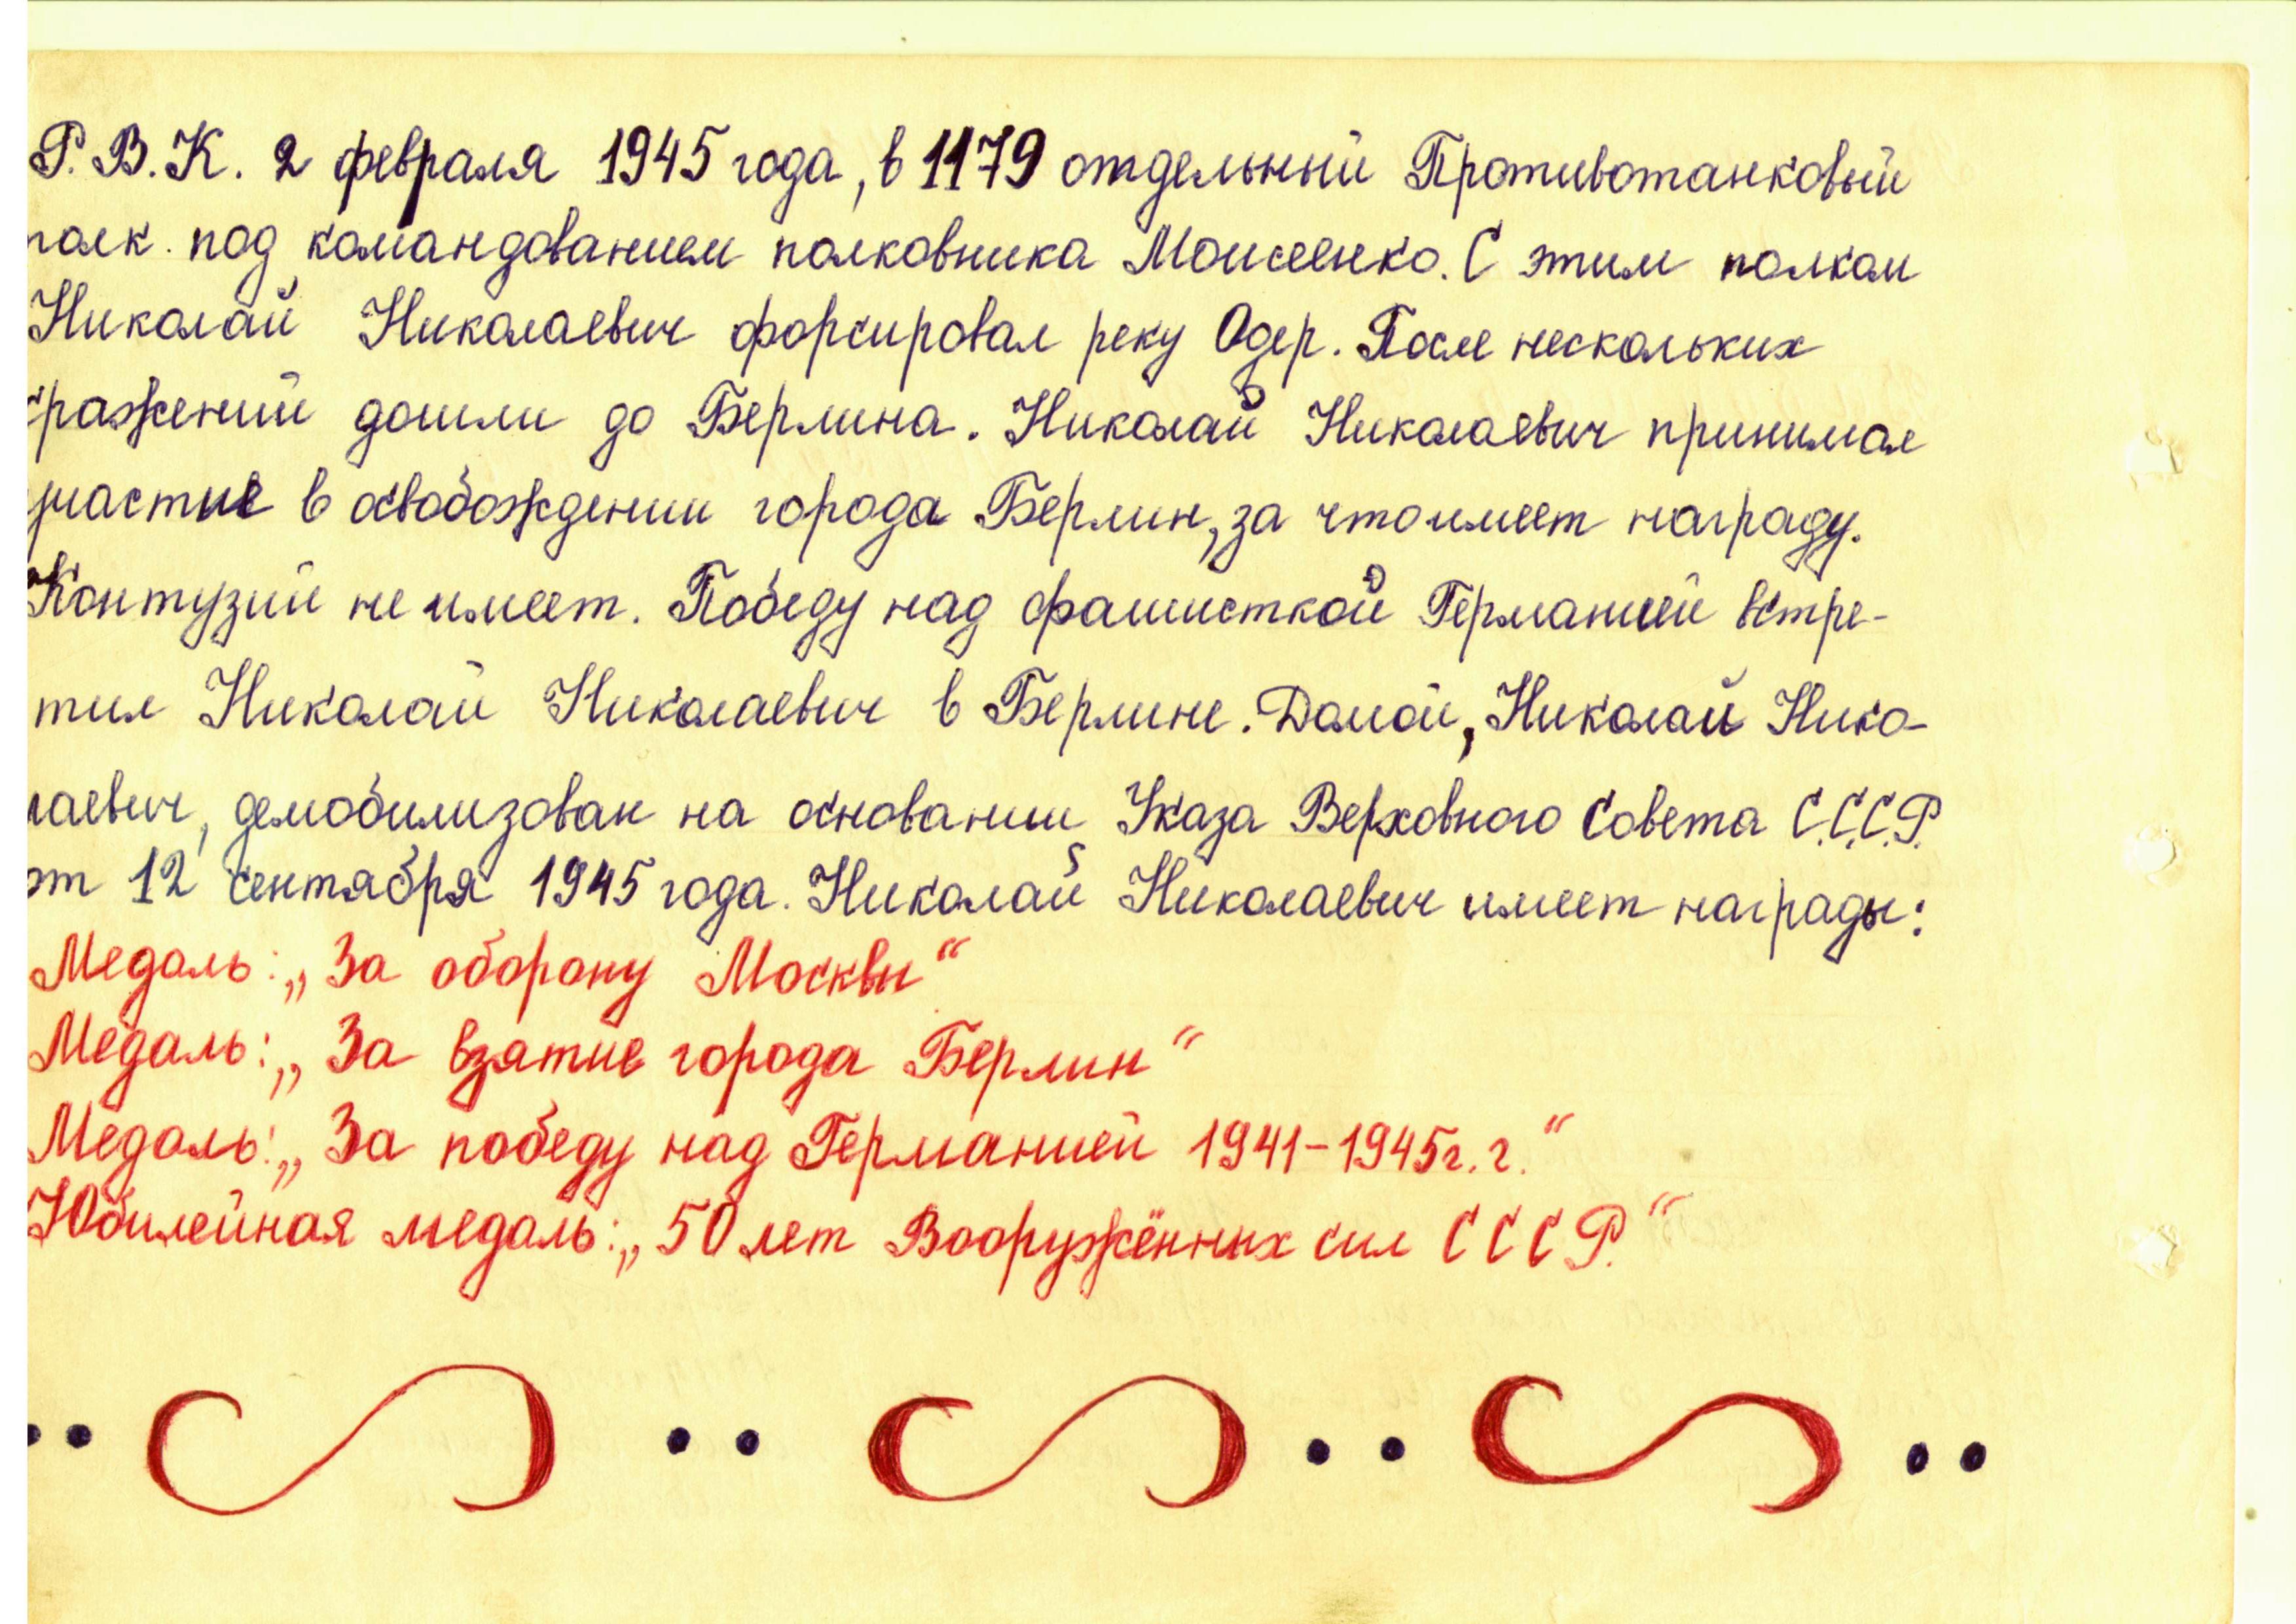 Р.В.К. 2 февраля 1945 года, в 1179 отдельный Противотанковый
полк под командованием полковника Моисеенко. С этим полком
Николай Николаевич форсировал реку Одер. После нескольких
сражений дошли до Берлина. Николай Николаевич принимал
участие в освобождении города Берлин, за что имеет награду.
Контузий не имеет. Победу над фашисткой Германией встре-
тил Николай Николаевич в Берлине. Домой, Николай Нико-
лаевич, демобилизован на основании Указа Верховного Совета С.С.С.Р.
от 12 сентября 1945 года. Николай Николаевич имеет награды:
Медаль: „За оборону Москвы“
Медаль: „За взятие города Берлин“
Медаль: „За победу над Германией 1941-1945 г.г.“
Юбилейная медаль: „50 лет Вооружённых сил СССР.“